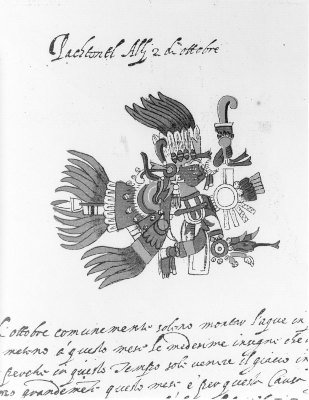 Pachtontl Alli 2 di ottobre
l'ottobre comunemente solono montar l'aque in
metono à questo mese le medesime insigne che
perche in questo tempo sole venire il giacio in
grandemente questo mese e per questo